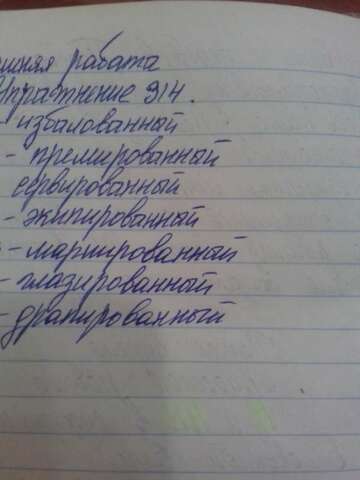 шняя работа
Упражнение 314.
- избалованный
- премированный
сервированный
- экипированный
- марширо­ванный
- глазированный
- драпированный